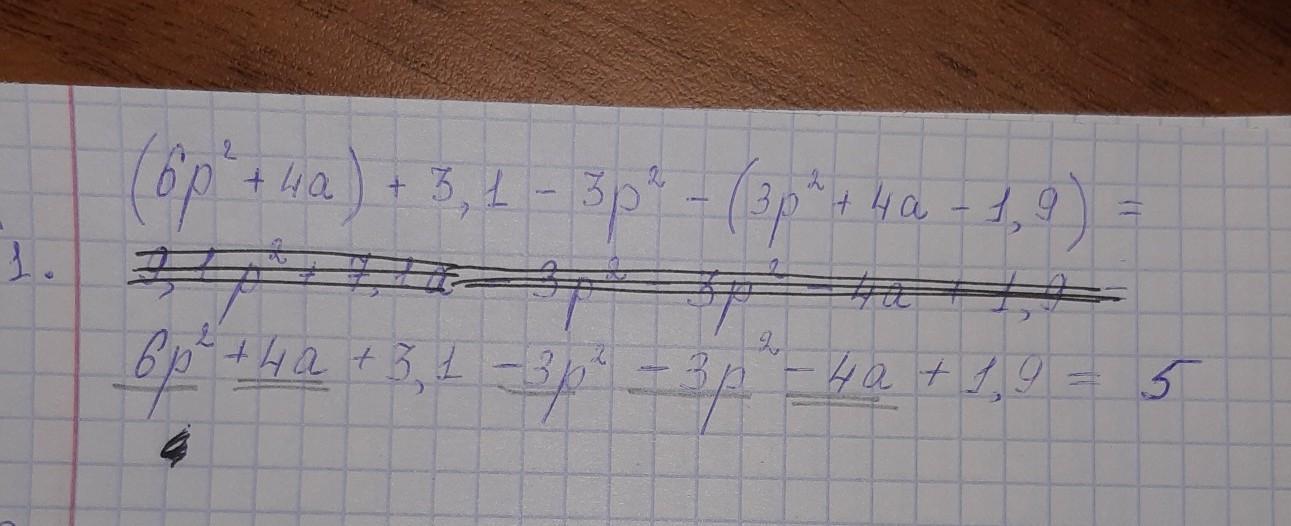 (6p² + 4a) + 3,1 - 3p² - (3p² + 4a - 1,9) =
1. 9,1p² + 7,1a - 3p² - 3p² - 4a + 1,9 =
6p² + 4a + 3,1 - 3p² - 3p² - 4a + 1,9 = 5